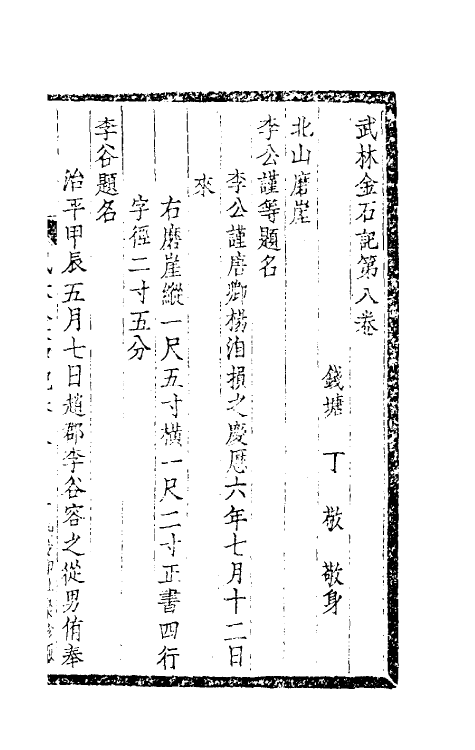 武林金石記第八卷
錢塘 丁 敬 敬身
北山磨崖
李公謹等題名
李公謹唐卿楊洎損之慶厯六年七月十二日
來
右磨崖縱一尺五寸橫一尺二寸正書四行
字徑二寸五分
李谷題名
治平甲辰五月七日趙郡李谷容之從男侑奉